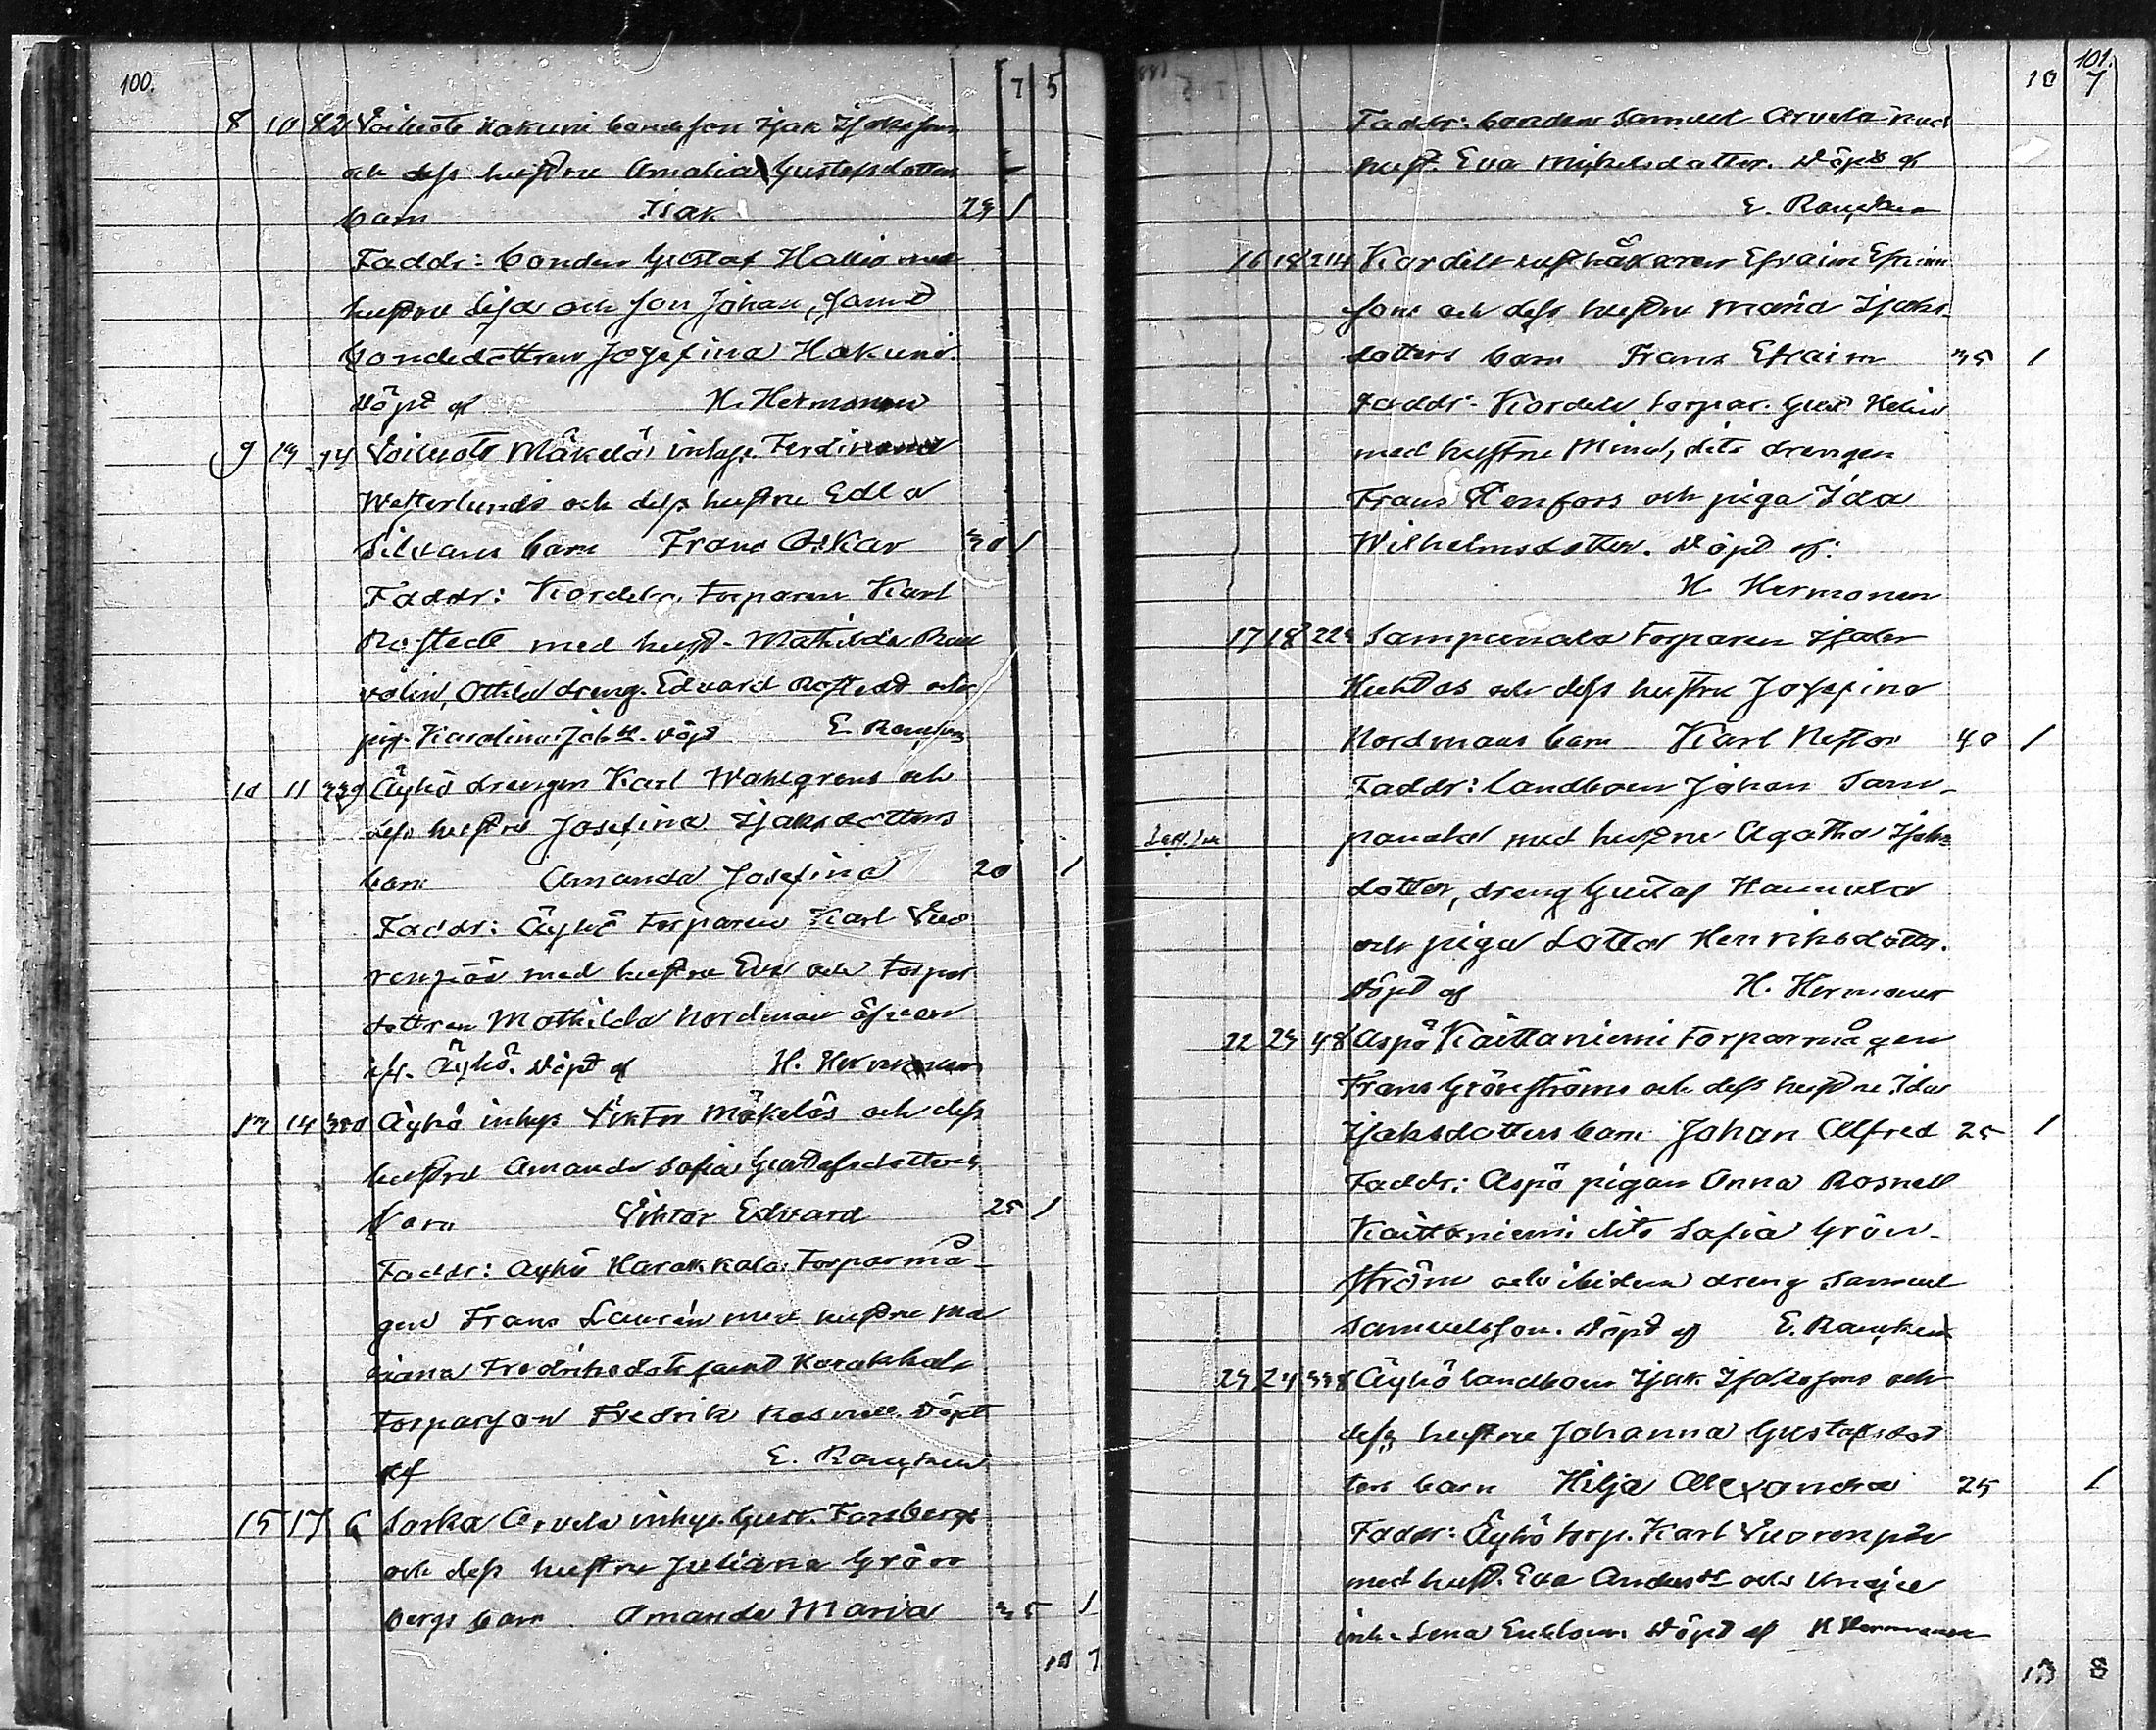 100.
7 5
8 10 82 Voiluoto Hakuni bondeson Isak Isaksons
och dess hustru Amalia Gustafsdotters
barn Isak 29 1
Faddr: bonden Gustaf Hallio med
hustru Lisa och son Johan, samt
bondedottren Josefina Hakuni.
Döpt af H. Hermonen
9 13 74 Voiluoto Mäkelä inhys. Ferdinand
Westerlunds och dess hustru Edla
barn Frans Oskar 30 1
Faddr: Kordela torparen Karl
Rostedt med hust. Mathilda
dreng. Edvard Rostedt och
pig. Karolina döpt E.
10 11 339 Äyhö drengen Karl Wahlgrens och
dess hustru Josefina Isaksdotters
barn Amanda Josefina 20 1
Faddr: Äyhö torparen Karl Vuo
renpää med hustru Eva och torpar
dottren Mathilda Nordman
ifr. Äyhö. Döpt af H. Hermonen
13 14 350 Äyhö inhys Viktor Mäkeläs och dess
hustru Amanda Sofia Gustafsdotters
barn Viktor Edvard 25 1
Faddr: Äyhö Harakkala torparmå-
gen Frans Laurén med hustru Ma
riana samt Harakkala
torparson Fredrik Rosnell. Döpt
af E.
15 17 6 Sorka Arvela inhys. Gust. Forsbergs
och dess hustru Juliana Grön
bergs barn Amanda Maria 35 1
10 7
101.
10 7
Faddr: bonden Samuel Arvela med
hust. Eva Mickelsdotter. Döpt af
E.
16 18 214 Kordela Efraim Efraim
sons och dess hustru Maria Isaks-
dotters barn Frans Efraim 35 1
Faddr: Kordela torpar. Gust Helin
med hustru Mina, dito drengen
Frans och piga Ida
Wilhelmsdotter. Döpt af:
H Hermonen
17 18 Sampanala torparen
och dess hustru Josefina
Nordmans barn Karl Nestor 40 1
Faddr: Landboen Johan Sam-
panala med hustru Agatha Isaks
dotter, dreng Gustaf Hannula
och piga Lotta Henriksdottr.
Döpt af H. Hermonen
22 23 48 Aspö Kaittaniemi torparmågen
Frans Grönströms och dess hustru Ida
Isaksdotters barn Johan Alfred 25 1
Faddr: Aspö pigan Anna Rosnell
Kaittaniemi dito Sofia Grön-
ström och ibidem dreng Samuel
Samuelsson. Döpt af E.
23 24 338 Äyhö landboen Isak Isaksons och
dess hustru Johanna Gustafsdot
ters barn Hilja Alexandra 25 1
Faddr: Äyhö torp. Karl Vuorenpää
med hust. Eva Andersdr och
inh. Lena Döpt af H Hermonen
13 8